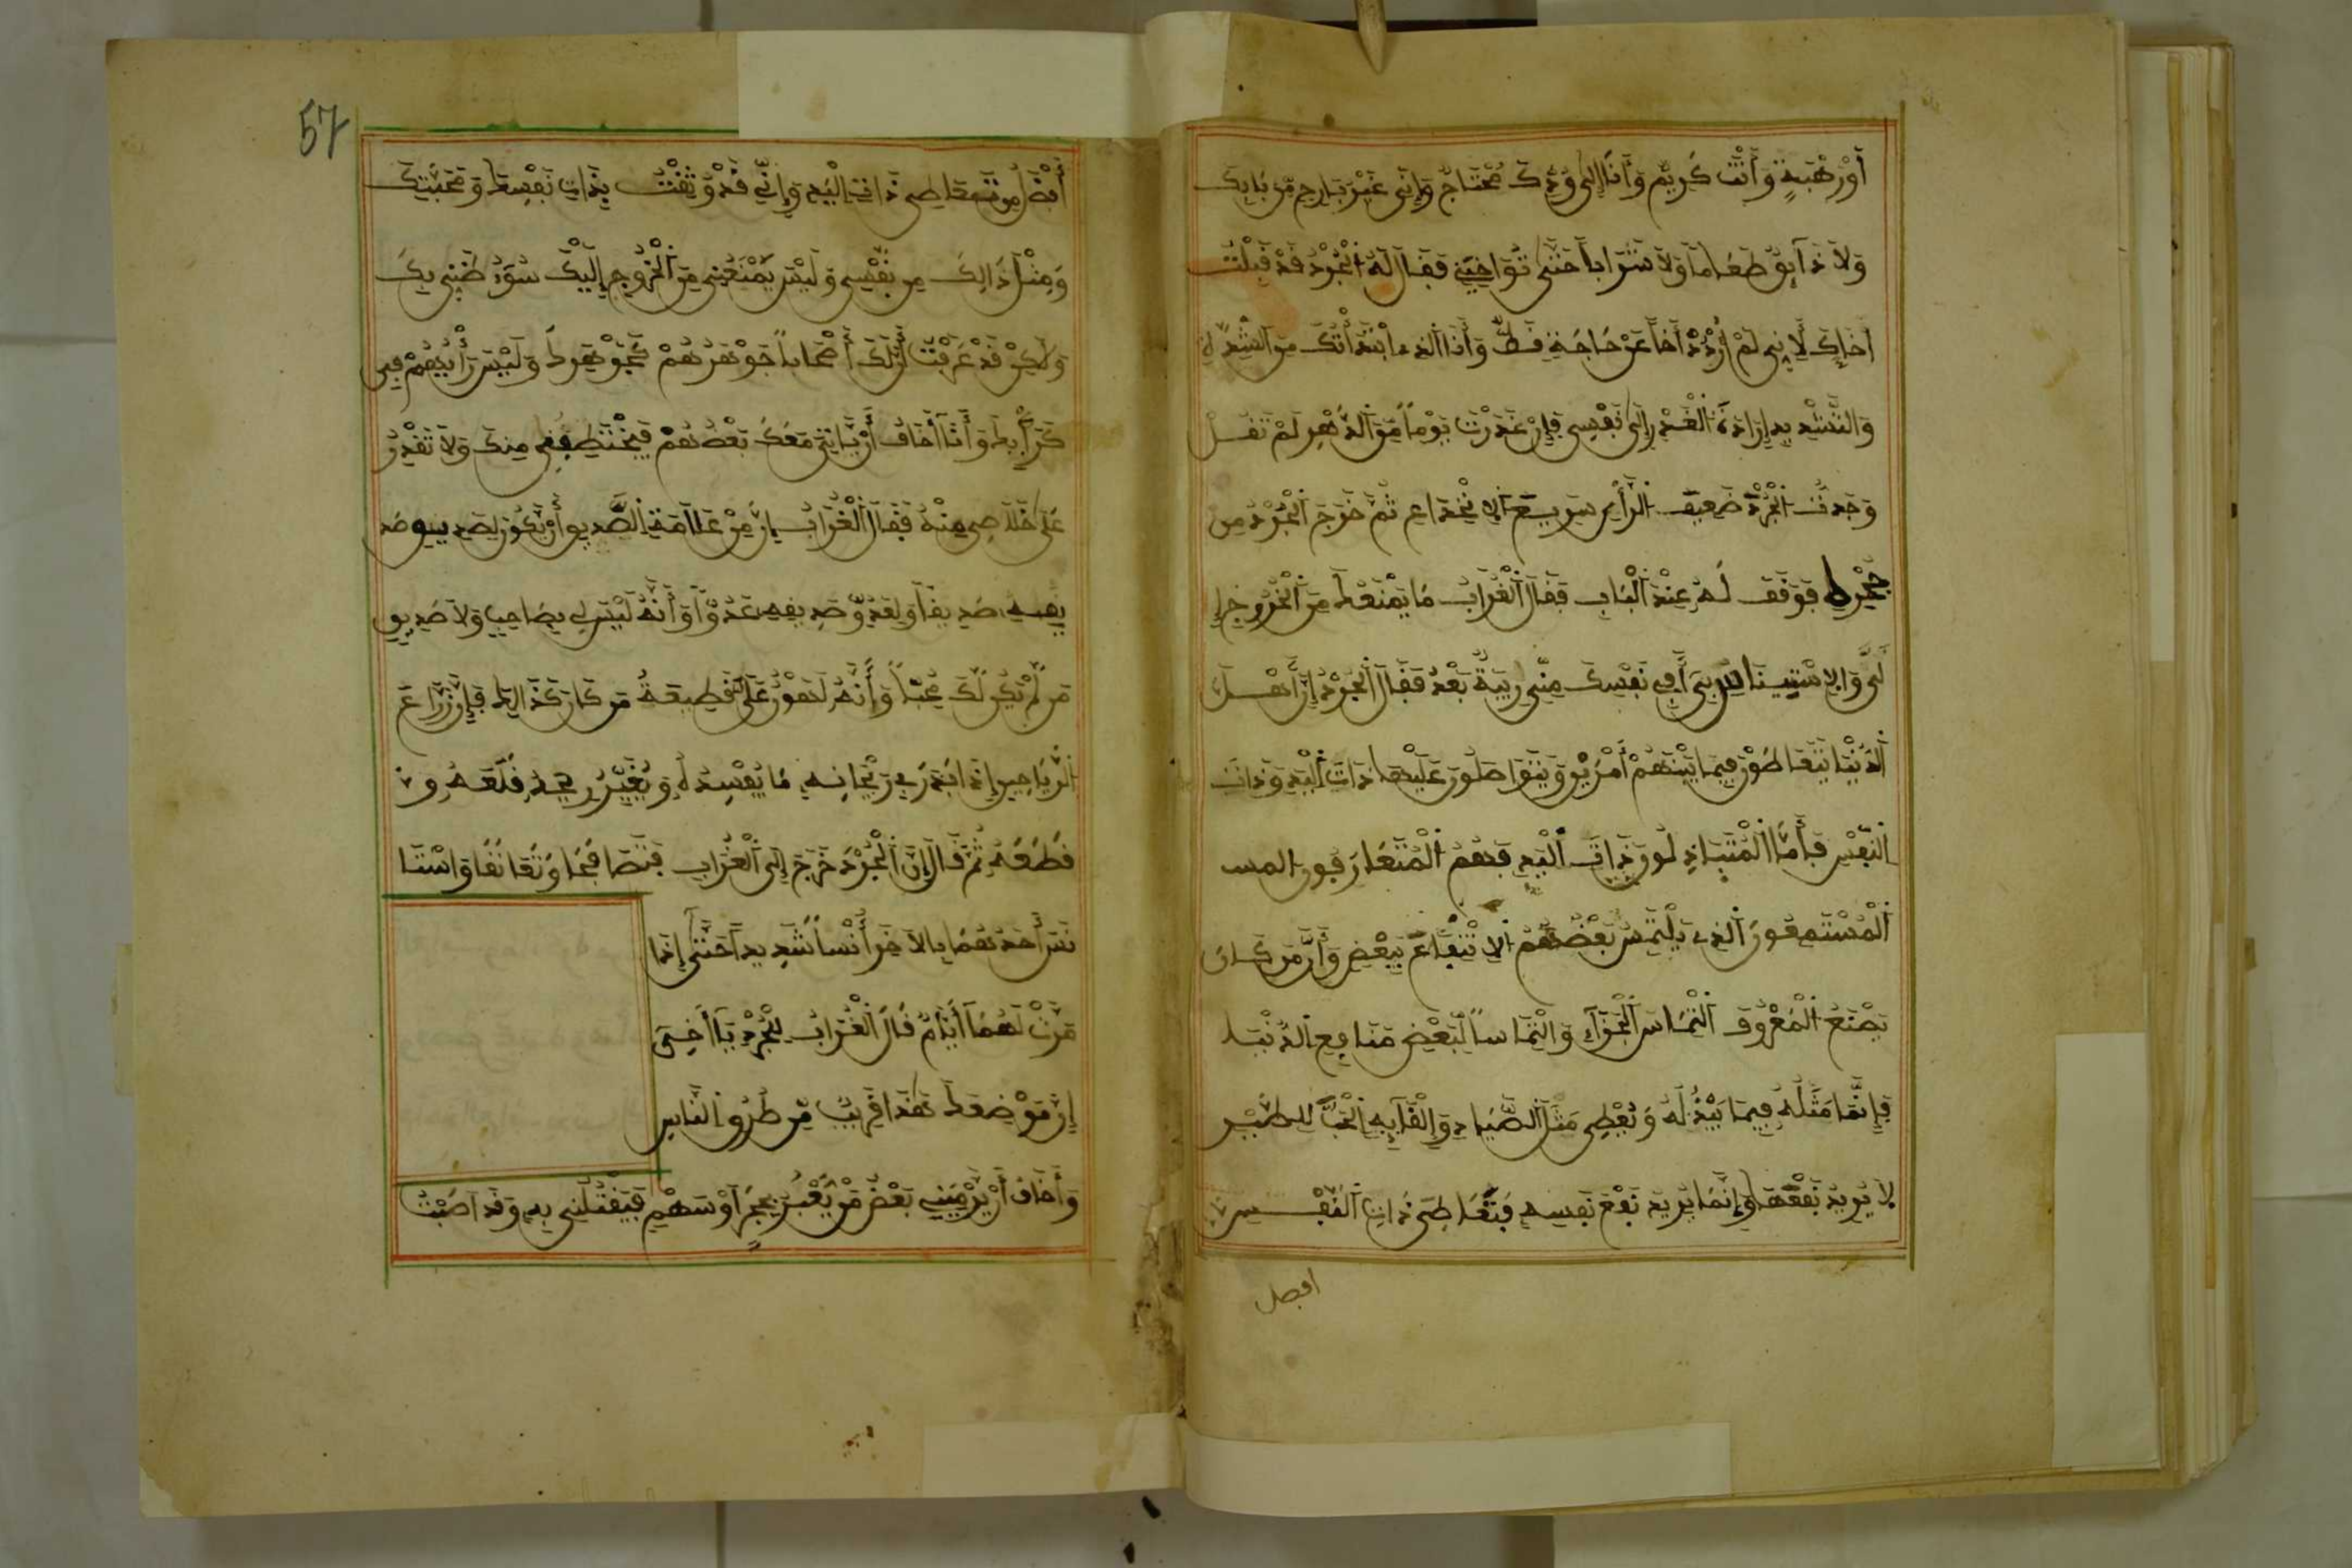 أَوْ رَهْبَةٍ وَأَنْتَ كَرِيمٌ وَأَنَا إِلَى وُدِّكَ مُحْتَاجٌ وَإِنِّي غَيْرُ بَارِحٍ مِّن بَابِكَ
وَلاَ ذَآئِقٌ طَعَاماً وَلاَ شَرَاباً حَتَّى تُوَاخِيَنِي فَقَالَ لَهُ الْجُرْذُ قَدْ قَبِلْتُ
إِخَاءَكَ لِأَنِّي لَمْ أَرْدُدْ أَخاً عَنْ حَاجَةٍ قَطُّ وَأَنَا الذي ابْتَدَأْتُكَ مِنَ الشِّدَّةِ
وَالتَّشْدِيدِ إِرَادَةَ الْغَدْرِ إِلَى نَفْسِي فَإِنْ غَدَرْتَ يَوْماً مِّنَ الدَّهْرِ لَمْ تَقُلْ
وَجَدتُّ الْجُرْذَ ضَعِيفَ الرَّأْيِ سَرِيعَ الاِنْخِدَاعِ ثُمَّ خَرَجَ الْجُرْذُ مِن
جُحْرِهِ فَوَقَفَ لَهُ عِنْدَ الْبَابِ فَقَالَ الْغُرَابُ مَا يَمْنَعُكَ مِنَ الْخُرُوجِ إِ
لَيَّ وَالاِسْتِينَاسِ بِي أَفِي نَفْسِكَ مِنِّي رِيبَةٌ بَعْدُ فَقَالَ الْجُرْذُ إِنَّ أَهْلَ
الدُّنْيَا يَتَعَاطَوْنَ فِيمَا بَيْنَهُمْ أَمْرَيْنِ وَيَتَوَاصَلُونَ عَلَيْهِمَا ذَاتَ الْيَدِ وَذَاتَ
النَّفْسِ فَأَمَّا الْمُتَبَاذِلُونَ ذَاتَ الْيَدِ فَهُمُ الْمُتَعَارِفُونَ المس
الْمُسْتَمِعُونَ الَّذِي يَلْتَمِسُ بَعْضُهُمُ الاِنْتِفَاعَ بِبَعْضٍ وَأَنَّ مَن كَانَ
يَصْنَعُ الْمَعْرُوفَ الْتِمَاسَ الْجَزَآءِ وَالْتِمَاساً لِّبَعْضِ مَنَافِعِ الدُّنْيَا
فَإِنَّمَا مَثَلُهُ فِيمَا يَبْذُلُهُ وَيُعْطِي مَثَلَ الصَّيَّادِ وَإِلْقَآئِهِ الْحَبَّ لِلطَّيْرِ
لاَ يُرِيدُ نَفْعَهَا وَإِنَّمَا يُرِيدُ نَفْعَ نَفْسِهِ فَتَعَاطِي ذَاتِ النَّفْسِ
افضل
57
أَفْضَلُ مِن تَعَاطِي ذَاتِ الْيَدِ وَإِنِّي قَدْ وَثِقْتُ بِذَاتِ نَفْسِكَ وَمَحَبَّتِكَ
وَمِثْلُ ذَالِكَ مِن نَّفْسِي وَلَيْسَ يَمْنَعُنِي مِنَ الْخُرُوجِ إِلَيْكَ سُوءُ ظَنِّي بِكَ
وَلَكِنْ قَدْ عَرَفْتُ أَنَّ لَكَ أَصْحَاباً جَوْهَرُهُمْ كَجَوْهَرِكَ وَلَيْسَ رَأْيُهُمْ فِي
كَرَأْيِكَ وَأَنَا أَخَافُ أَنْ يَّأْتِيَ مَعَكَ بَعْضُهُمْ فَيَخْتَطِفُنِي مِنكَ وَلاَ تَقْدِرُ
عَلَى خَلاَصِي مِنْهُ فَقَالَ الْغُرَابُ إِنَّ مِنْ عَلاَمَةِ الصَّدِيقِ أَنْ يَّكُونَ لِصَدِيقِ صَدِ
يقِهِ صَدِيقاً وَلِعَدُوِّ صَدِيقِهِ عَدُوّاً وَأَنَّهُ لَيْسَ لِي بِصَاحِبٍ وَلاَ صَدِيقٍ
مَن لَّمْ يَكُن لَّكَ مُحِبّاً وَأَنَّهُ لَهَوْنٌ عَلَيَّ قَطِيعَةُ مَن كَانَ كَذَالِكَ فَإِنَّ زَرَّاعَ
الرَّيَاحِينِ إِذَا ابْتَدَرَ فِي رَيْحَانِهِ مَا يُفْسِدُهُ وَيُغَيِّرُ رِيحَهُ قَلَعَهُ وَ
قَطَعَهُ ثُمَّ قَالَ إِنَّ الْجُرْذَ خَرَجَ إِلَى الْغُرَابِ فَتَصَافَحَا وَتَعَانَقَا وَاسْتَا
نَسَ أَحَدُهُمَا بِالاَخَرِ أُنْساً شَدِيداً حَتَّى إِذَا
مَرَّتْ لَهُمَا أَيَّامٌ قَالَ الْغُرَابُ لِلْجُرْذِ يَا أَخِي
إِنَّ مَوْضِعَكَ هَذَا قَرِيبٌ مِّن طُرُقِ النَّاسِ
وَأَخَافُ أَنْ يَّرْمِيَنِي بَعْضُ مَنْ يَّعْبُرُ بِحَجَرٍ أَوْ سَهْمٍ فَيَقْتُلَنِي بِهِ وَقَد اَصَبْتُ